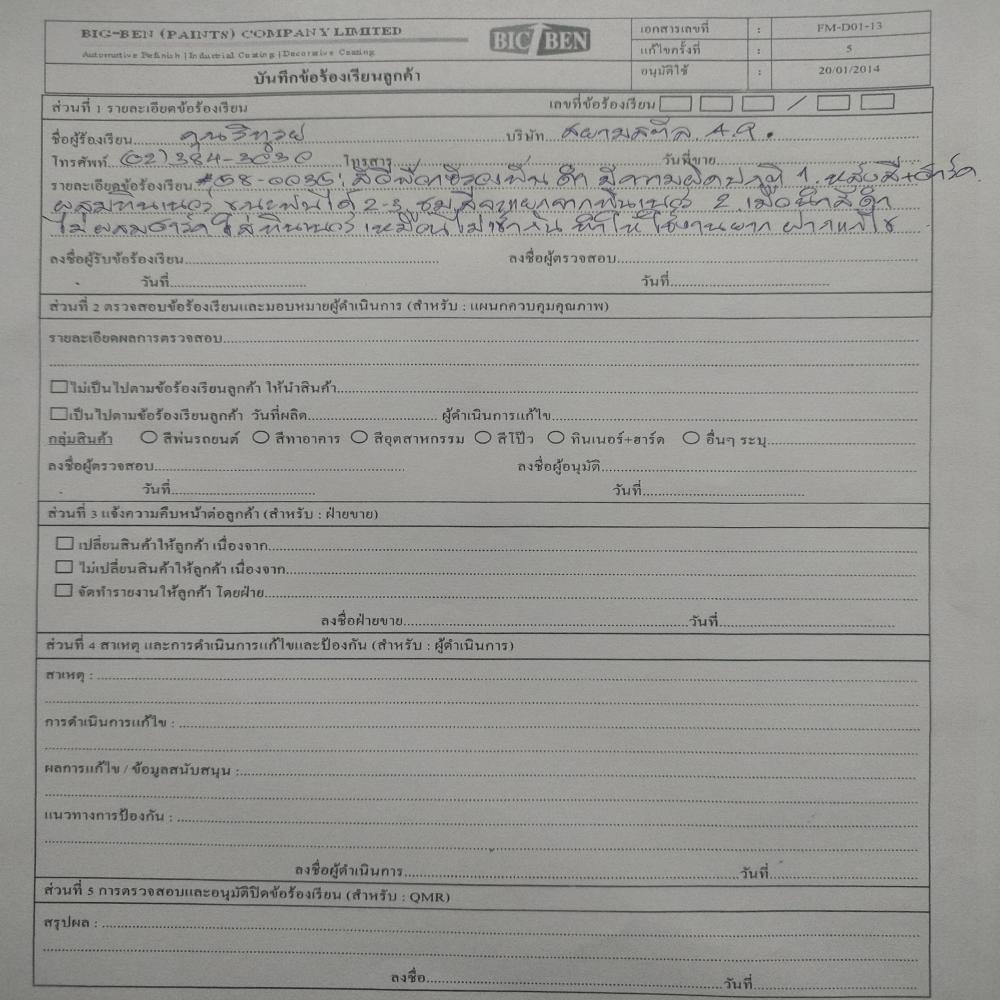 BIG-BEN (PAINTS) COMPANY LIMITED
Automotive Refinish | Industrial Coating | Decorative Coating
BIG BEN
เอกสารเลขที่ : FM-D01-13
แก้ไขครั้งที่ : 5
บันทึกข้อร้องเรียนลูกค้า
อนุมัติใช้ : 20/01/2014
ส่วนที่ 1 รายละเอียดข้อร้องเรียน เลขที่ข้อร้องเรียน /
ชื่อผู้ร้องเรียน คุณวิฑูรย์ บริษัท สยามสตีล A.P.
โทรศัพท์ (02) 384-3030 โทรสาร วันที่ขาย
รายละเอียดข้อร้องเรียน #58-0035 สีอีพ็อกซี่รองพื้น ดำ มีความผิดปกติ 1. หลังสี+ฮาร์ด
ผสมทินเนอร์ ขณะพ่นได้ 2-3 ชุด สีจะแยกจากทินเนอร์ 2. เมื่อนำสีดำ
ไม่ผสมฮาร์ด ใส่ทินเนอร์ เหมือนไม่เข้ากัน ทำให้ใช้งานยาก ฝากแก้ไข
ลงชื่อผู้รับข้อร้องเรียน ลงชื่อผู้ตรวจสอบ
วันที่ วันที่
ส่วนที่ 2 ตรวจสอบข้อร้องเรียนและมอบหมายผู้ดำเนินการ (สำหรับ : แผนกควบคุมคุณภาพ)
รายละเอียดผลการตรวจสอบ
ไม่เป็นไปตามข้อร้องเรียนลูกค้า ให้นำสินค้า
เป็นไปตามข้อร้องเรียนลูกค้า วันที่ผลิต ผู้ดำเนินการแก้ไข
กลุ่มสินค้า สีพ่นรถยนต์ สีทาอาคาร สีอุตสาหกรรม สีโป๊ว ทินเนอร์+ฮาร์ด อื่นๆ ระบุ
ลงชื่อผู้ตรวจสอบ ลงชื่อผู้อนุมัติ
วันที่ วันที่
ส่วนที่ 3 แจ้งความคืบหน้าต่อลูกค้า (สำหรับ : ฝ่ายขาย)
เปลี่ยนสินค้าให้ลูกค้า เนื่องจาก
ไม่เปลี่ยนสินค้าให้ลูกค้า เนื่องจาก
จัดทำรายงานให้ลูกค้า โดยฝ่าย
ลงชื่อฝ่ายขาย วันที่
ส่วนที่ 4 สาเหตุ และการดำเนินการแก้ไขและป้องกัน (สำหรับ : ผู้ดำเนินการ)
สาเหตุ :
การดำเนินการแก้ไข :
ผลการแก้ไข / ข้อมูลสนับสนุน :
แนวทางการป้องกัน :
ลงชื่อผู้ดำเนินการ วันที่
ส่วนที่ 5 การตรวจสอบและอนุมัติปิดข้อร้องเรียน (สำหรับ : QMR)
สรุปผล :
ลงชื่อ วันที่